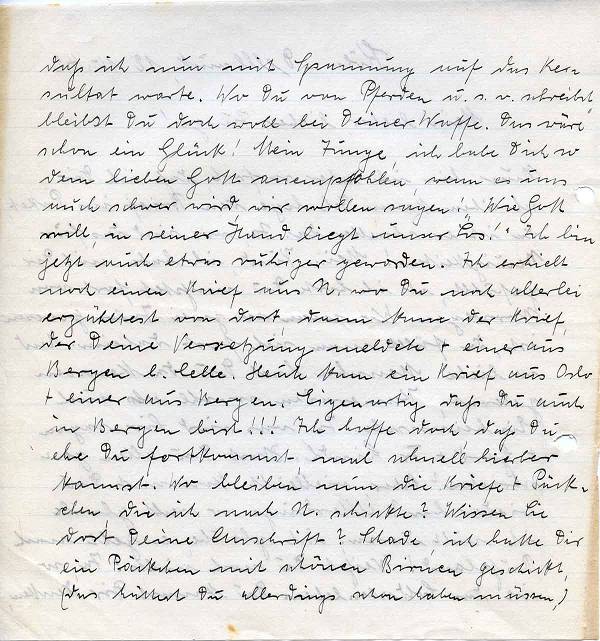 daß ich nun mit Spannung auf das Re=
sultat warte. Wo Du von Pferden u. s. w. schreibst,
bleibst Du doch wohl bei Deiner Waffe. Das wäre
schon ein Glück! Mein Junge, ich habe Dich so
dem lieben Gott anempfohlen, wenn es uns
auch schwer wird, wir wollen sagen! „Wie Gott
will, in seiner Hand liegt unser Los!" Ich bin
jetzt auch etwas ruhiger geworden. Ich erhielt
noch einen Brief aus N. wo Du noch allerlei
erzähltest von dort, dann kam der Brief,
der Deine Versetzung meldete + einer aus
Bergen b. Celle. Heute kam ein Brief aus Oslo
+ einer aus Bergen. Eigenartig daß Du auch
in Bergen bist!!! Ich hoffe doch, daß Du,
ehe Du fortkommst, mal schnell hierher
kannst. Wo bleiben nun die Briefe + Päck=
chen, die ich nach N. schickte? Wissen Sie
dort Deine Anschrift? Schade, ich hatte Dir
ein Päckchen mit schönen Birnen geschickt,
(das hättest Du allerdings schon haben müssen,)